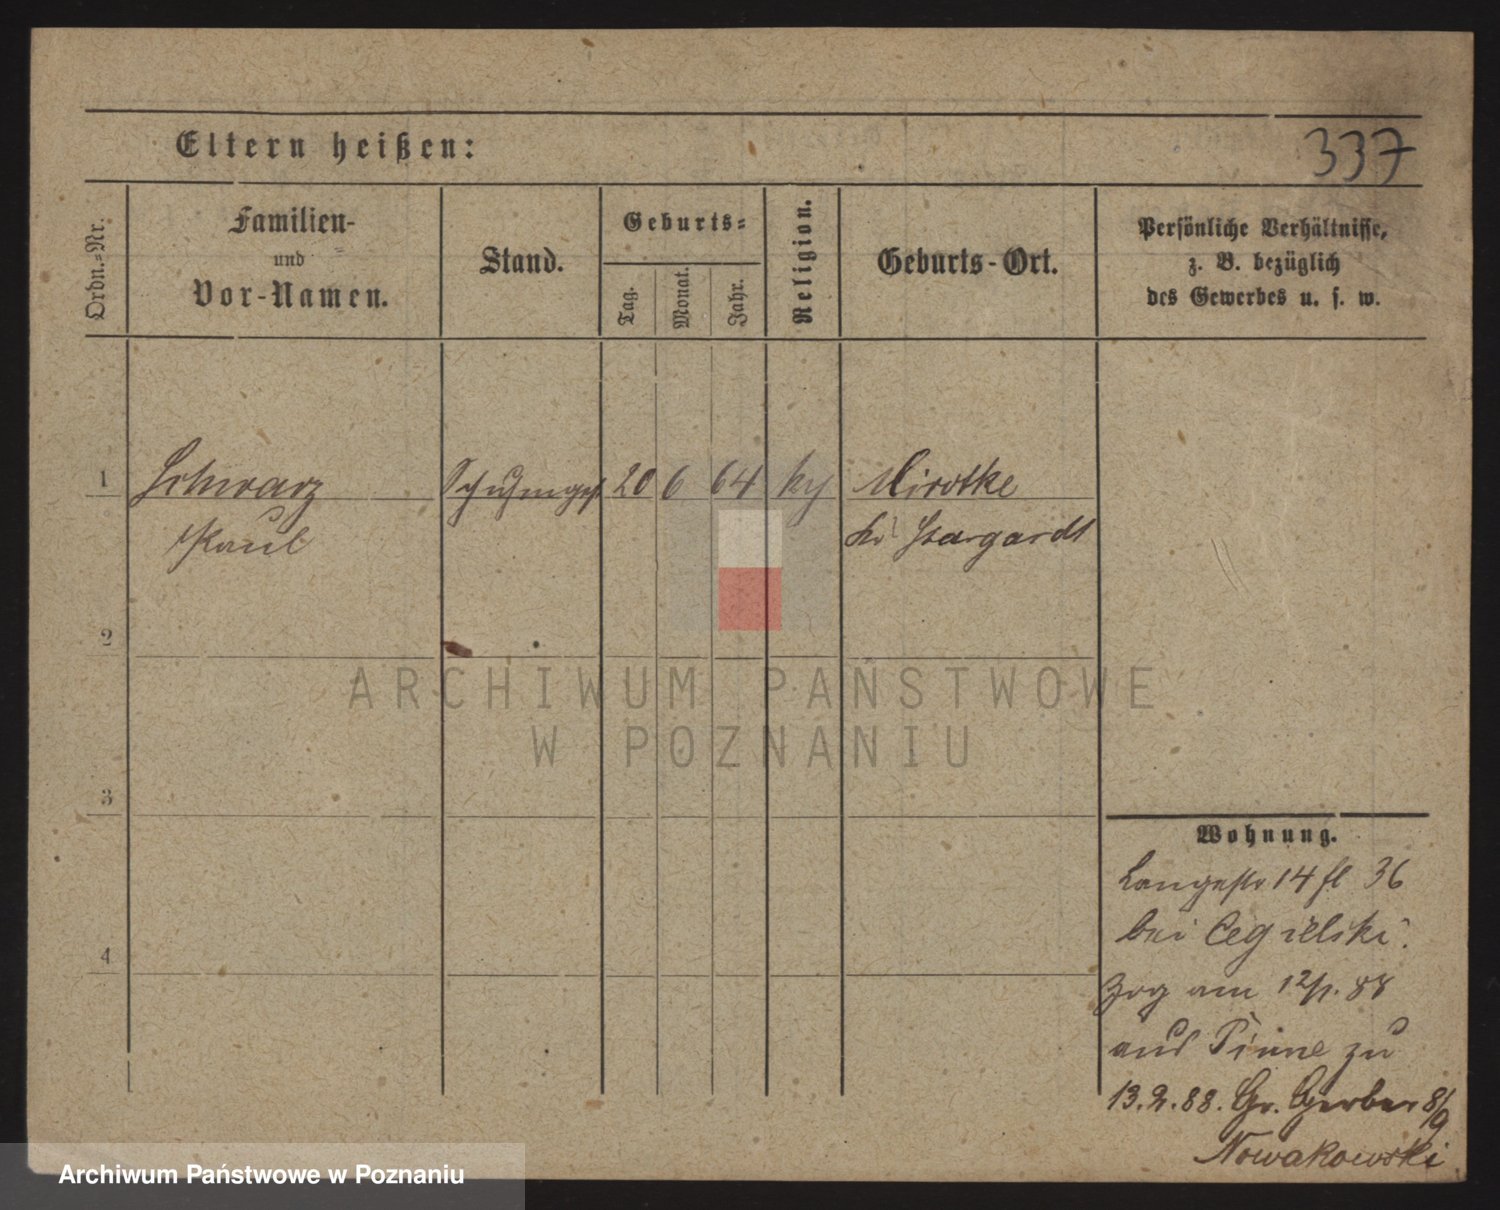 Eltern heißen:
337
Ordn.-Nr.
Familien-
und
Vor-Namen.
Stand.
Geburts-
Tag.
Monat.
Jahr.
Religion.
Geburts-Ort.
Persönliche Verhältnisse,
z. B. bezüglich
des Gewerbes u. s. w.
1 Schwarz Schuhmges 20 6 64 Mirotke
Paul Kr Stargardt
2
3
4
ARCHIWUM PAŃSTWOWE
W POZNANIU
Wohnung.
Langestr 14 36
bei Cegielski.
Zog am 12/1. 88
aus Pinne zu
13.2.88. Gr. Gerber 8/9
Nowakowski
Archiwum Państwowe w Poznaniu